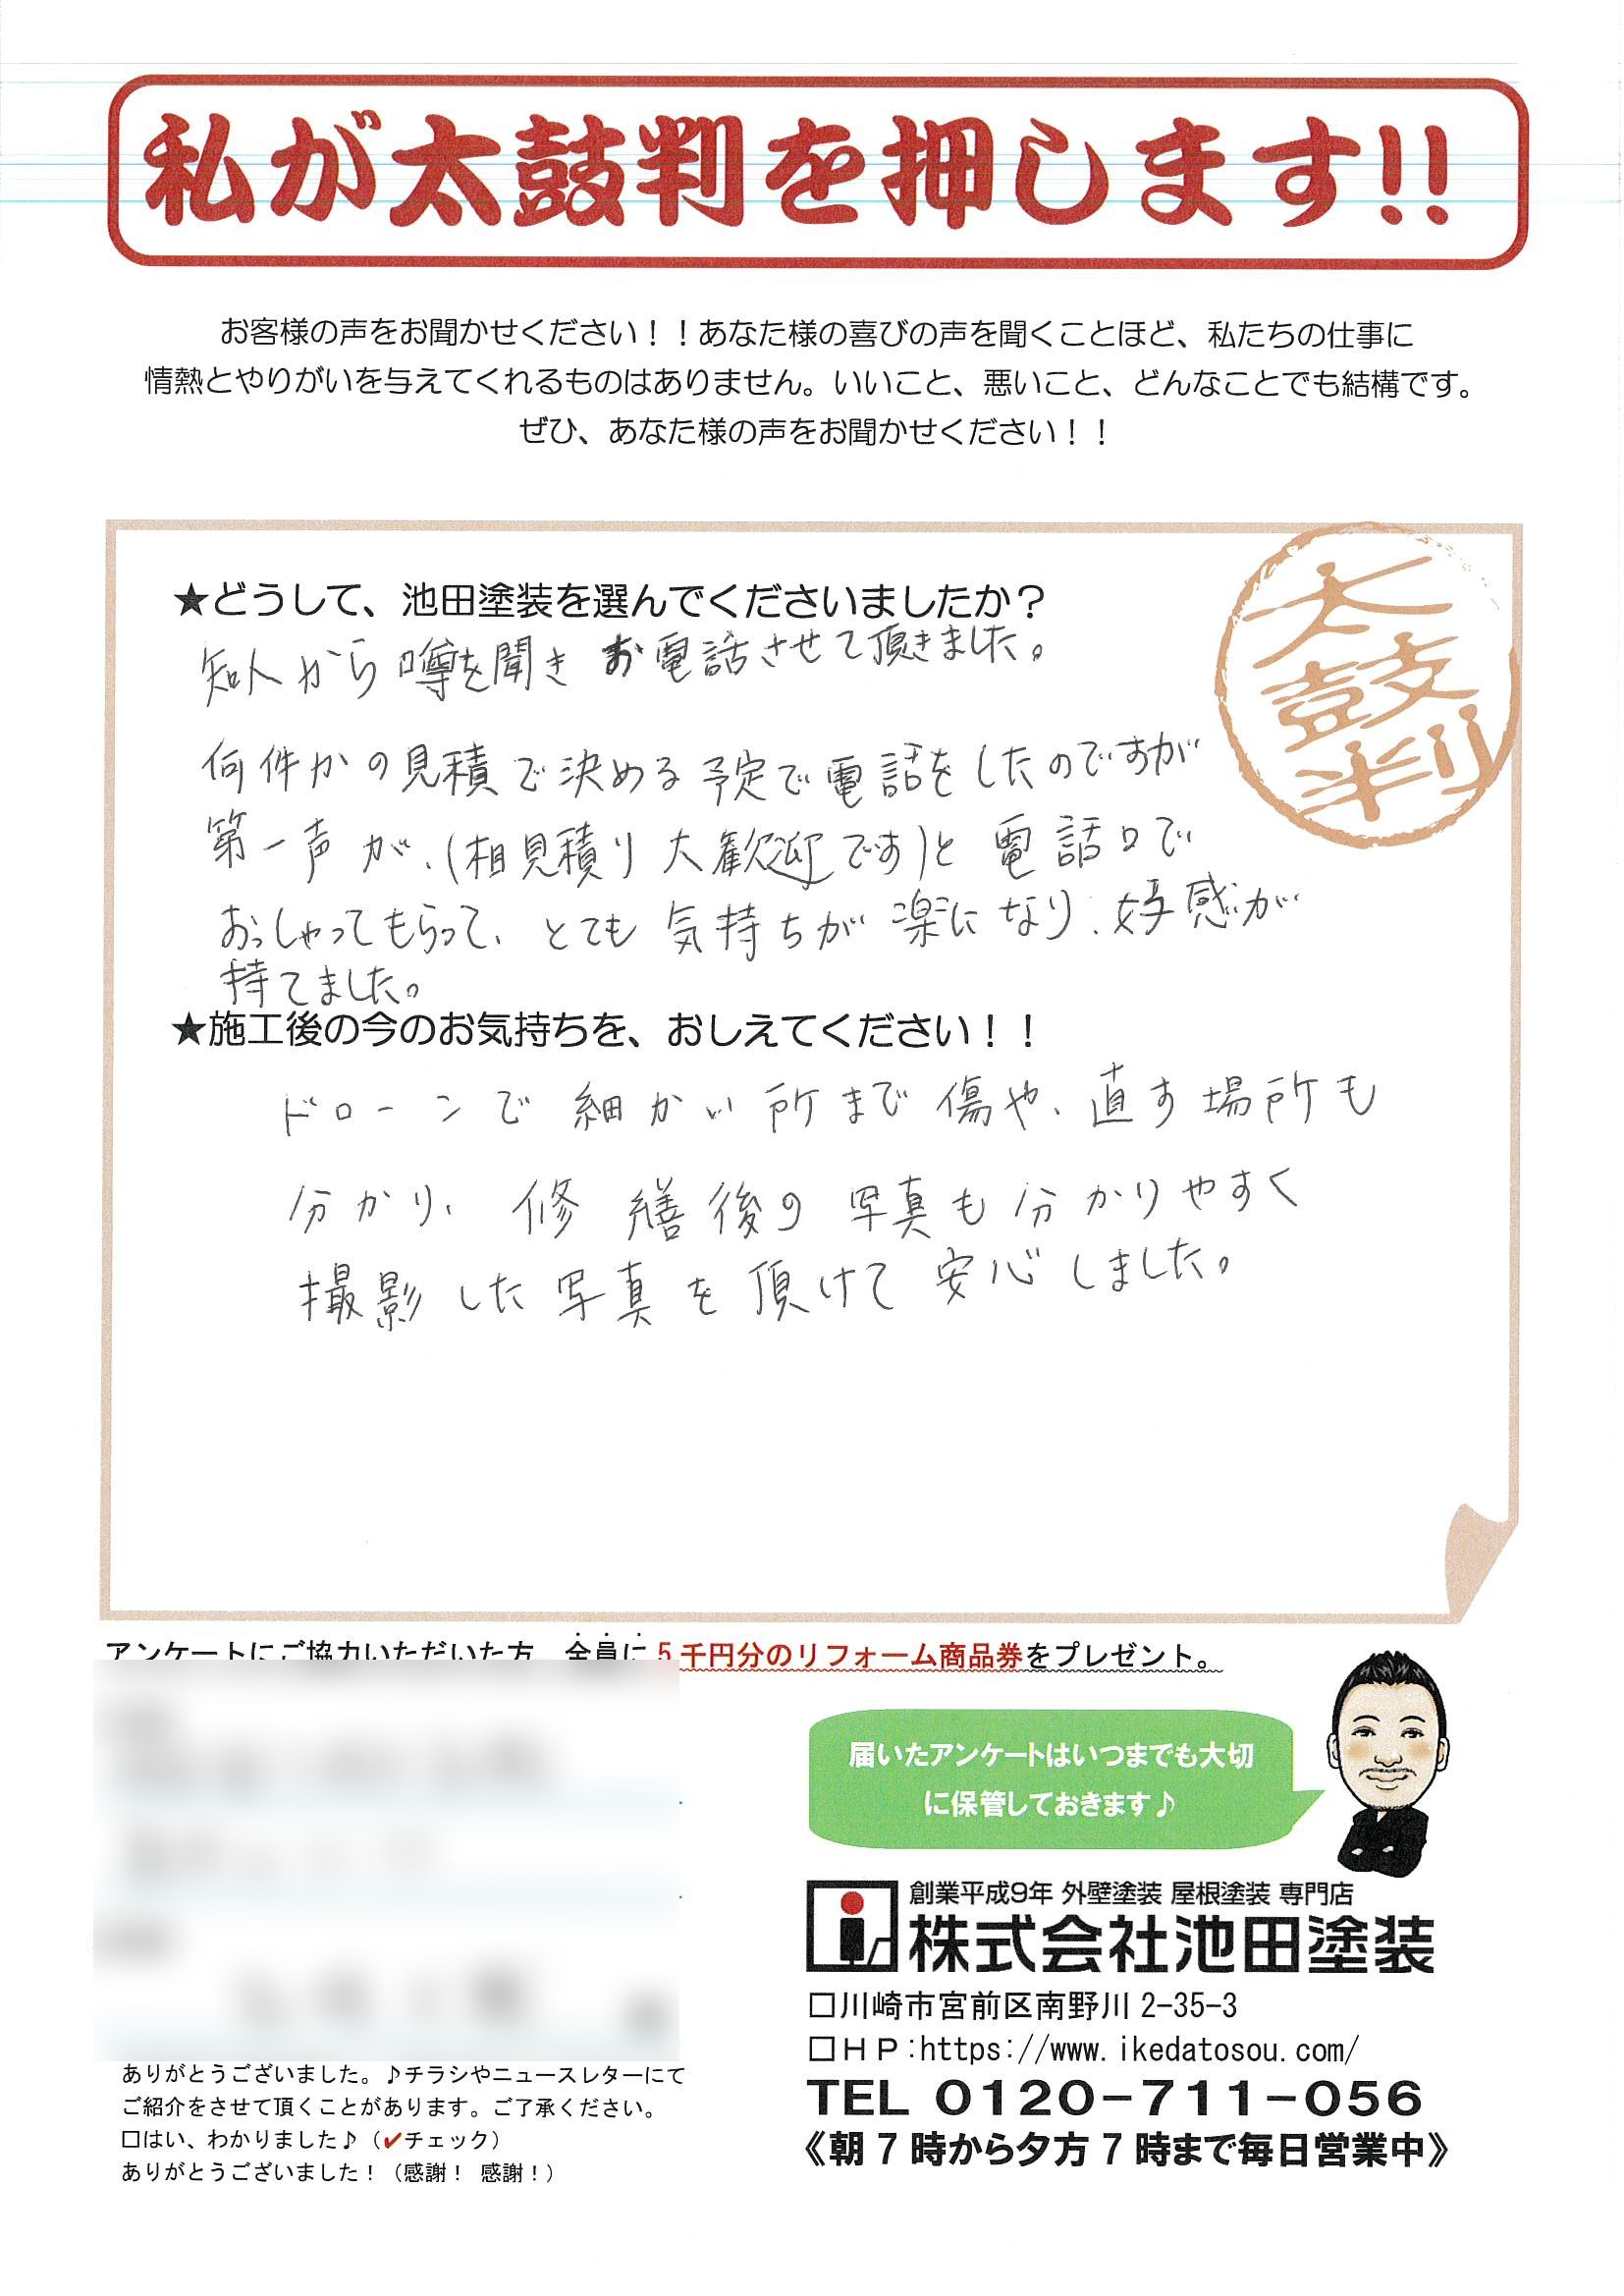 私が太鼓判を押します!!
お客様の声をお聞かせください！！あなた様の喜びの声を聞くことほど、私たちの仕事に
情熱とやりがいを与えてくれるものはありません。いいこと、悪いこと、どんなことでも結構です。
ぜひ、あなた様の声をお聞かせください！！
太鼓判
★どうして、池田塗装を選んでくださいましたか？
知人から噂を聞き お電話させて頂きました。
何件かの見積で決める予定で電話をしたのですが
第一声が、(相見積り大歓迎です)と電話口で
おっしゃってもらって、とても気持ちが楽になり、好感が
持てました。
★施工後の今のお気持ちを、おしえてください！！
ドローンで細かい所まで傷や、直す場所も
分かり、修繕後の写真も分かりやすく
撮影した写真を頂けて安心しました。
アンケートにご協力いただいた方、全員に5千円分のリフォーム商品券をプレゼント。
届いたアンケートはいつまでも大切
に保管しておきます♪
創業平成9年 外壁塗装 屋根塗装 専門店
株式会社池田塗装
□川崎市宮前区南野川2-35-3
□HP:https://www.ikedatosou.com/
TEL 0120-711-056
《朝7時から夕方7時まで毎日営業中》
ありがとうございました。♪チラシやニュースレターにて
ご紹介をさせて頂くことがあります。ご了承ください。
□はい、わかりました♪（✔チェック）
ありがとうございました！（感謝！ 感謝！）